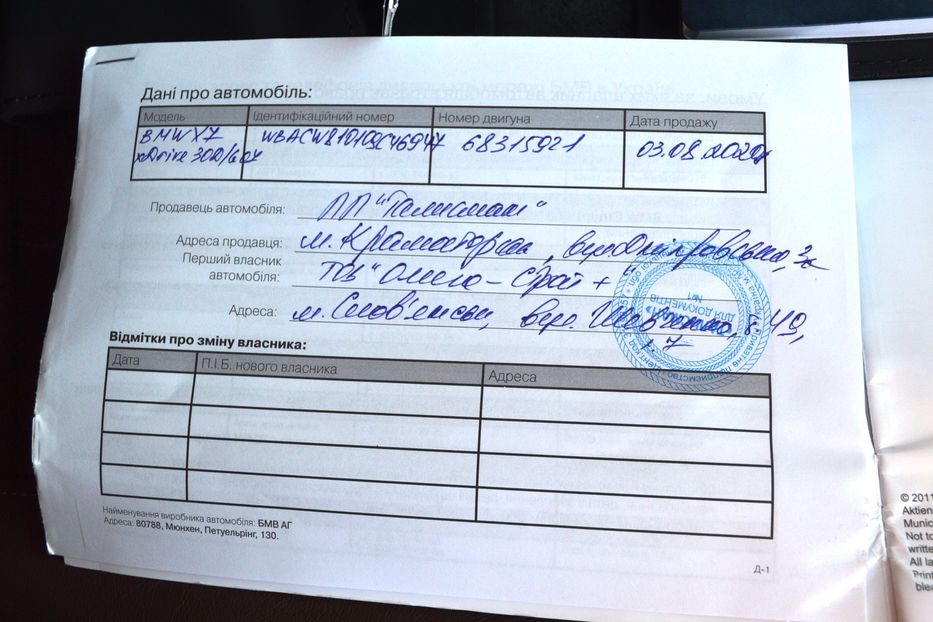 Дані про автомобіль:
Модель Ідентифікаційний номер Номер двигуна Дата продажу
BMW X7 68315921 03.08.2020
xDrive 30D
Продавець автомобіля: ПП "Талисман"
Адреса продавця: м. Краматорськ, вул. Дніпровська,
Перший власник
автомобіля: ТОВ "Омега-Строй+"
Адреса: м. Слов'янськ, вул. Шевченка,
ДЛЯ ДОКУМЕНТІВ
№1
Відмітки про зміну власника:
Дата П.І.Б. нового власника Адреса
Найменування виробника автомобіля: БМВ АГ
Адреса: 80788, Мюнхен, Петуельрінг, 130.
Д-1
© 2011
Aktien
Munic
Not to
writte
All la
Print
blea